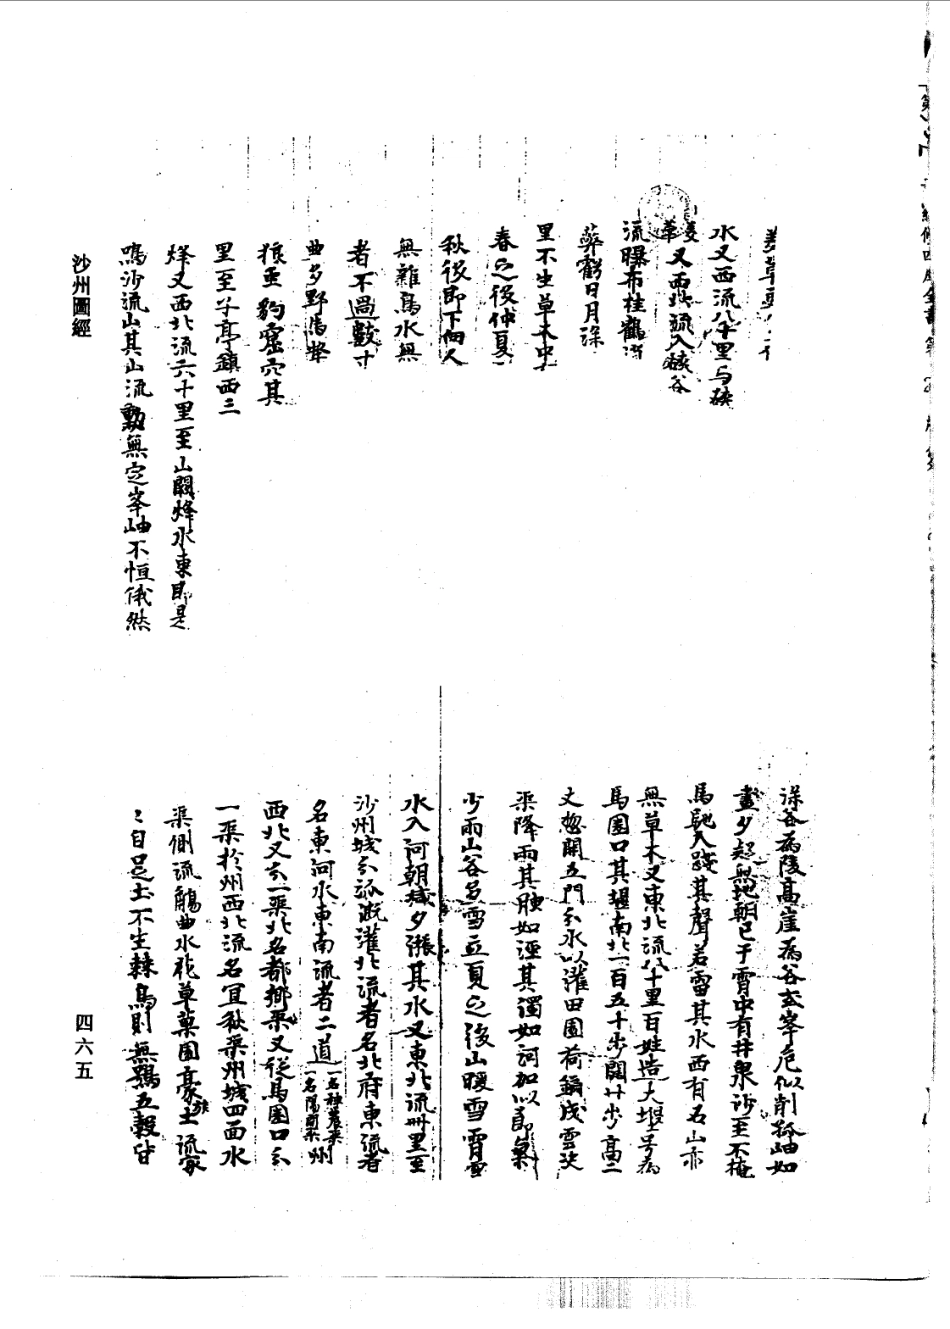 美草
水又西流八十里与硤
又西北流入硤谷
流曝布桂鶴
蔽虧日月深
里不生草木中
春之後仲夏
秋後即下
無雜鳥水無
者不過數寸
曲多野
狼虫豹窟穴其
里至子亭鎮西三
烽又西北流六十里至山闕烽水東即是
鳴沙流山其山流動無定峯岫不恒俄然
沙州圖經
深谷為陵高崖為谷或峯危似削孤岫如
畫夕起無地朝已干霄中有井泉沙至不掩
馬馳人踐其聲若雷其水西有石山亦
無草木又東北流八十里百姓造大堰号為
馬圈口其堰南北一百五十步闊廿步高二
丈惣開五門分水以灌田園荷鍤成雲決
渠降雨其腴如涇其濁如河加以節氣
少雨山谷多雪立夏之後山暖雪消雪
水入河朝減夕漲其水又東北流卌里至
沙州城分派溉灌北流者名北府東流者
名東河水東南流者二道一名神農渠一名陽開渠州
西北又分一渠北名都鄉渠又從馬圈口分
一渠於州西北流名宜秋渠州城四面水
渠側流觴曲水花草菓園豪士流家
〻自足土不生棘鳥則無鴞五穀皆
四六五